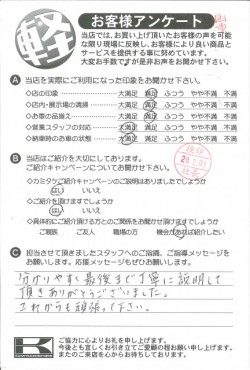 軽
お客様アンケート
当店では、お買い上げ頂いたお客様の声を可能
な限り現場に反映し、お客様により良い商品と
サービスを提供する事に努めています。
大変お手数ですが是非お声をお聞かせ下さい。
A 当店を実際にご利用になった印象をお聞かせ下さい。
◇店の印象 大満足 満足 ふつう やや不満 不満
◇店内・展示場の清掃 大満足 満足 ふつう やや不満 不満
◇お車の品揃え 大満足 満足 ふつう やや不満 不満
◇営業スタッフの対応 大満足 満足 ふつう やや不満 不満
◇納車時のお車の状態 大満足 満足 ふつう やや不満 不満
B 当店はご紹介を大切にしております。
ご紹介キャンペーンについてお聞かせ下さい。
◇カミタケご紹介キャンペーンのご説明はありましたでしょうか
はい いいえ
◇ご紹介を頂けますでしょうか
はい いいえ
◇具体的にご紹介頂ける方とのご関係をお聞かせ頂けますでしょうか
ご親族 ご友人 職場の方 機会があれば紹介したい
C 担当させて頂きましたスタッフへのご指摘、ご指導メッセージを
お願いします。応援メッセージもぜひお願いします。
分かりやすく最後まで丁寧に説明して
頂きありがとうございました。
これからも頑張って下さい。
K
ご協力に心よりお礼を申し上げます。
今後とも宜しくお引き立てご愛顧の程お願い申し上げます。
またのご来店を心からお待ちしております。